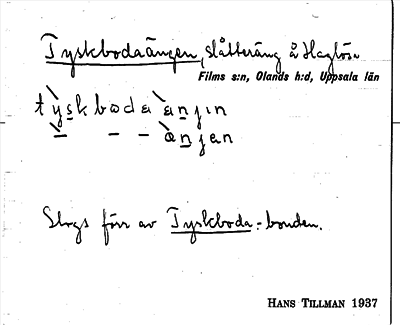 Tyskbodaängen, slåtteräng å Haglösa
Films s:n, Olands h:d, Uppsala län
tyskboda änjın
– – – änjen
Slogs förr av Tyskboda-bonden.
HANS TILLMAN 1937